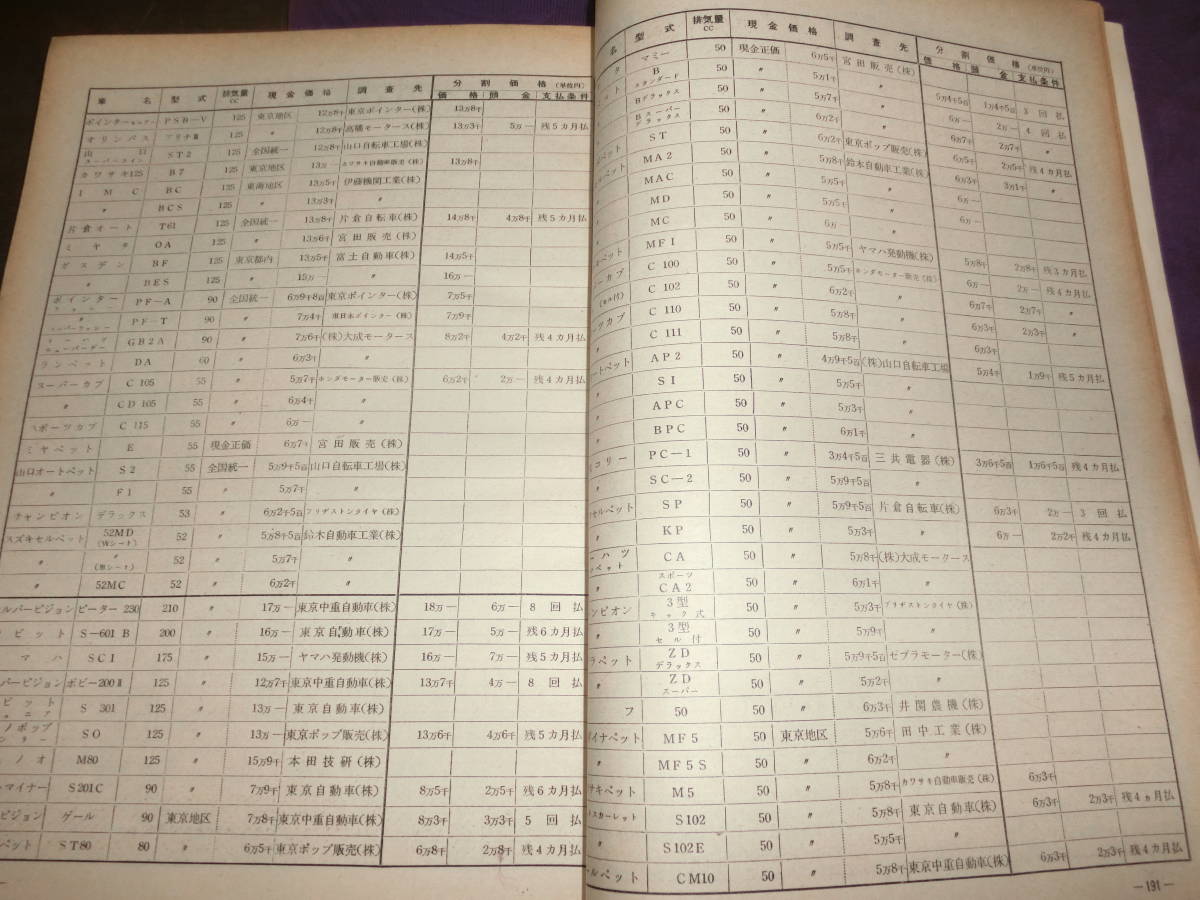 車名 型式 排気量cc 現金価格 調査先 分割価格(単位円) 価格 頭金 支払条件
ポインター PSB-V 125 東京地区 12万8千 東京ポインター(株) 13万8千
オリンパス 125 〃 12万8千 高橋モータース(株) 13万3千 5万― 残5カ月払
山口スーパーライン ST2 125 全国統一 12万8千 山口自転車工場(株)
カワサキ125 B7 125 東京地区 13万― カワサキ自動車販売(株) 13万8千
IMC BC 125 東海地区 13万5千 伊藤機関工業(株)
〃 BCS 125 〃 13万3千 〃
片倉オート T61 125 全国統一 13万8千 片倉自転車(株) 14万8千 4万8千 残5カ月払
ミヤタ OA 125 〃 13万6千 宮田販売(株)
ガスデン BF 125 東京都内 13万5千 富士自動車(株) 14万5千
〃 BES 125 〃 15万― 〃 16万―
ポインター PF-A 90 全国統一 6万9千8百 東京ポインター(株) 7万5千
〃 PF-T 90 〃 7万4千 東日本ポインター(株) 7万9千
GB2A 90 〃 7万6千 (株)大成モータース 8万2千 4万2千 残4カ月払
ランペット DA 60 〃 6万3千 〃
スーパーカブ C105 55 〃 5万7千 ホンダモーター販売(株) 6万2千 2万― 残4カ月払
〃 CD105 55 〃 6万4千 〃
ポーツカブ C115 55 〃 6万― 〃
ミヤペット E 55 現金正価 6万7千 宮田販売(株)
山口オートペット S2 55 全国統一 5万9千5百 山口自転車工場(株)
〃 F1 55 〃 5万7千 〃
チャンピオン デラックス 53 〃 6万2千5百 ブリヂストンタイヤ(株)
スズキセルペット 52MD(Wシート) 52 〃 5万8千5百 鈴木自動車工業(株)
〃 〃(単シート) 52 〃 5万7千 〃
〃 52MC 52 〃 6万2千 〃
ルバーピジョン ピーター230 210 〃 17万― 東京中重自動車(株) 18万― 6万― 8回払
ビット S-601B 200 〃 16万― 東京自動車(株) 17万― 5万― 残6カ月払
マハ SC1 175 〃 15万― ヤマハ発動機(株) 16万― 7万― 残5カ月払
バーピジョン ボビー200Ⅱ 125 〃 12万7千 東京中重自動車(株) 13万7千 4万― 8回払
ビットュニア S301 125 〃 13万― 東京自動車(株)
ノポップ SO 125 〃 13万― 東京ポップ販売(株) 13万6千 4万6千 残5カ月払
ノオ M80 125 〃 15万9千 本田技研(株)
マイナー S201C 90 〃 7万9千 東京自動車(株) 8万5千 2万5千 残6カ月払
ピジョン ゲール 90 東京地区 7万8千 東京中重自動車(株) 8万3千 3万3千 5回払
ペット ST80 80 〃 6万5千 東京ポップ販売(株) 6万8千 2万8千 残4カ月払
名 型式 排気量cc 現金価格 調査先 分割価格(単位円) 価格 頭金 支払条件
マミー 50 現金正価 6万5千 宮田販売(株)
Bスタンダード 50 〃 5万1千 〃 5万4千5百 1万4千5百 3回払
Bデラックス 50 〃 5万7千 〃 6万― 2万― 4回払
Bスーパーデラックス 50 〃 6万2千 〃 6万7千 2万7千 〃
ペット ST 50 〃 6万2千 東京ポップ販売(株) 6万5千 2万5千 残4カ月払
ルペット MA2 50 〃 5万8千 鈴木自動車工業(株) 6万3千 3万1千 〃
〃 MAC 50 〃 5万5千 〃 6万―
〃 MD 50 〃 5万5千 〃 6万―
〃 MC 50 〃 6万― 〃
ペット MF1 50 〃 5万5千 ヤマハ発動機(株) 5万8千 2万8千 残3カ月払
ーカブ C100 50 〃 5万5千 ホンダモーター販売(株) 6万― 2万― 残4カ月払
(セル付) C102 50 〃 6万2千 〃 6万7千 2万7千 〃
ツカブ C110 50 〃 5万8千 〃 6万3千 2万3千 〃
〃 C111 50 〃 5万8千 〃 6万3千
ートペット AP2 50 〃 4万9千5百 (株)山口自転車工場 5万4千 1万9千 残5カ月払
〃 SI 50 〃 5万5千 〃
〃 APC 50 〃 5万3千 〃
〃 BPC 50 〃 6万1千 〃
コリー PC-1 50 〃 3万4千5百 三共電器(株) 3万6千5百 1万6千5百 残4カ月払
〃 SC-2 50 〃 5万9千5百 〃
セルペット SP 50 〃 5万9千5百 片倉自転車(株) 6万3千 2万― 3回払
〃 KP 50 〃 5万3千 〃 6万― 2万2千 残4カ月払
ーハツペット CA 50 〃 5万8千 (株)大成モータース
〃 スポーツCA2 50 〃 6万1千 〃
ンピオン 3型キック式 50 〃 5万3千 ブリヂストンタイヤ(株)
〃 3型セル付 50 〃 5万9千 〃
ラペット ZDデラックス 50 〃 5万9千5百 ゼブラモーター(株)
〃 ZDスーパー 50 〃 5万2千 〃
フ 50 50 〃 6万3千 井関農機(株)
イナペット MF5 50 東京地区 5万6千 田中工業(株)
〃 MF5S 50 〃 6万2千 〃
サキペット M5 50 〃 5万8千 カワサキ自動車販売(株) 6万3千
スカーレット S102 50 〃 5万8千 東京自動車(株) 6万3千 2万3千 残4カ月払
〃 S102E 50 〃 5万5千 〃
ールペット CM10 50 〃 5万8千 東京中重自動車(株) 6万3千 2万3千 残4カ月払
―191―